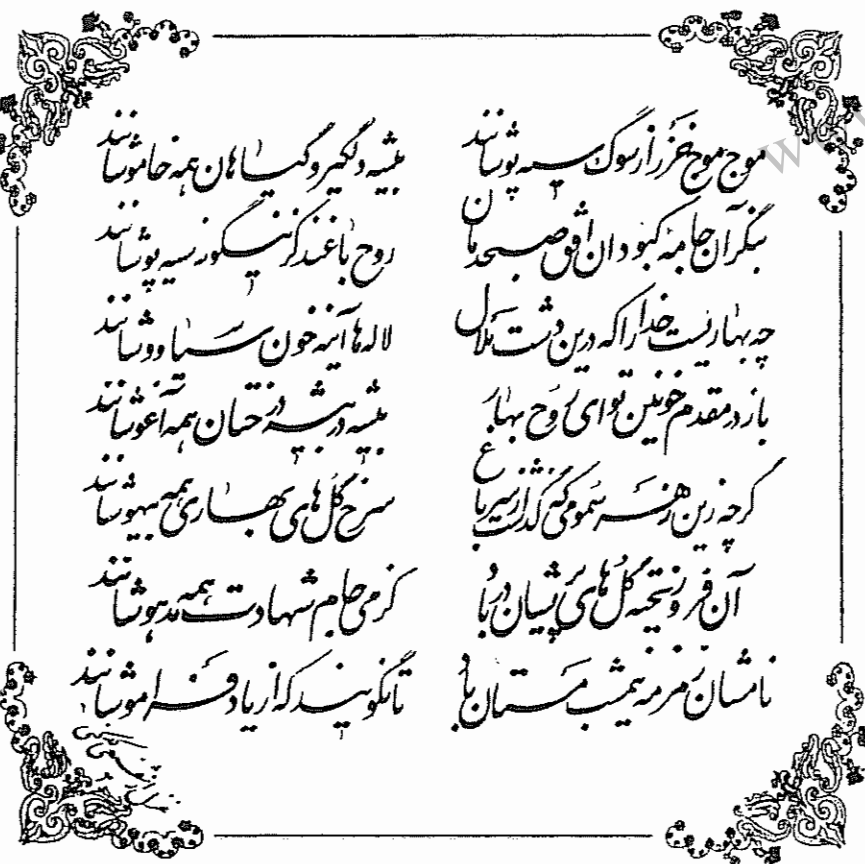 موج موج خزر از سوگ سیه پوشانند بیشه دلگیر و گیاهان همه خاموشانند
بنگر آن جامه کبودان افق صبحدمان روح باغند کزینگونه سیه پوشانند
چه بهاریست خدا را که درین دشت ملال لاله‌ها آینه خون سیاووشانند
باز در مقدم خونین تو ای روح بهار بیشه در بیشه درختان همه آغوشانند
گرچه زین زهر سمومی که گذشت از سر باغ سرخ گل‌های بهاری همه بیهوشانند
آن فرو ریخته گل‌های پریشان در باد کز می جام شهادت همه مدهوشانند
نامشان زمزمه نیمشب مستان باد تا نگویند که از یاد فراموشانند